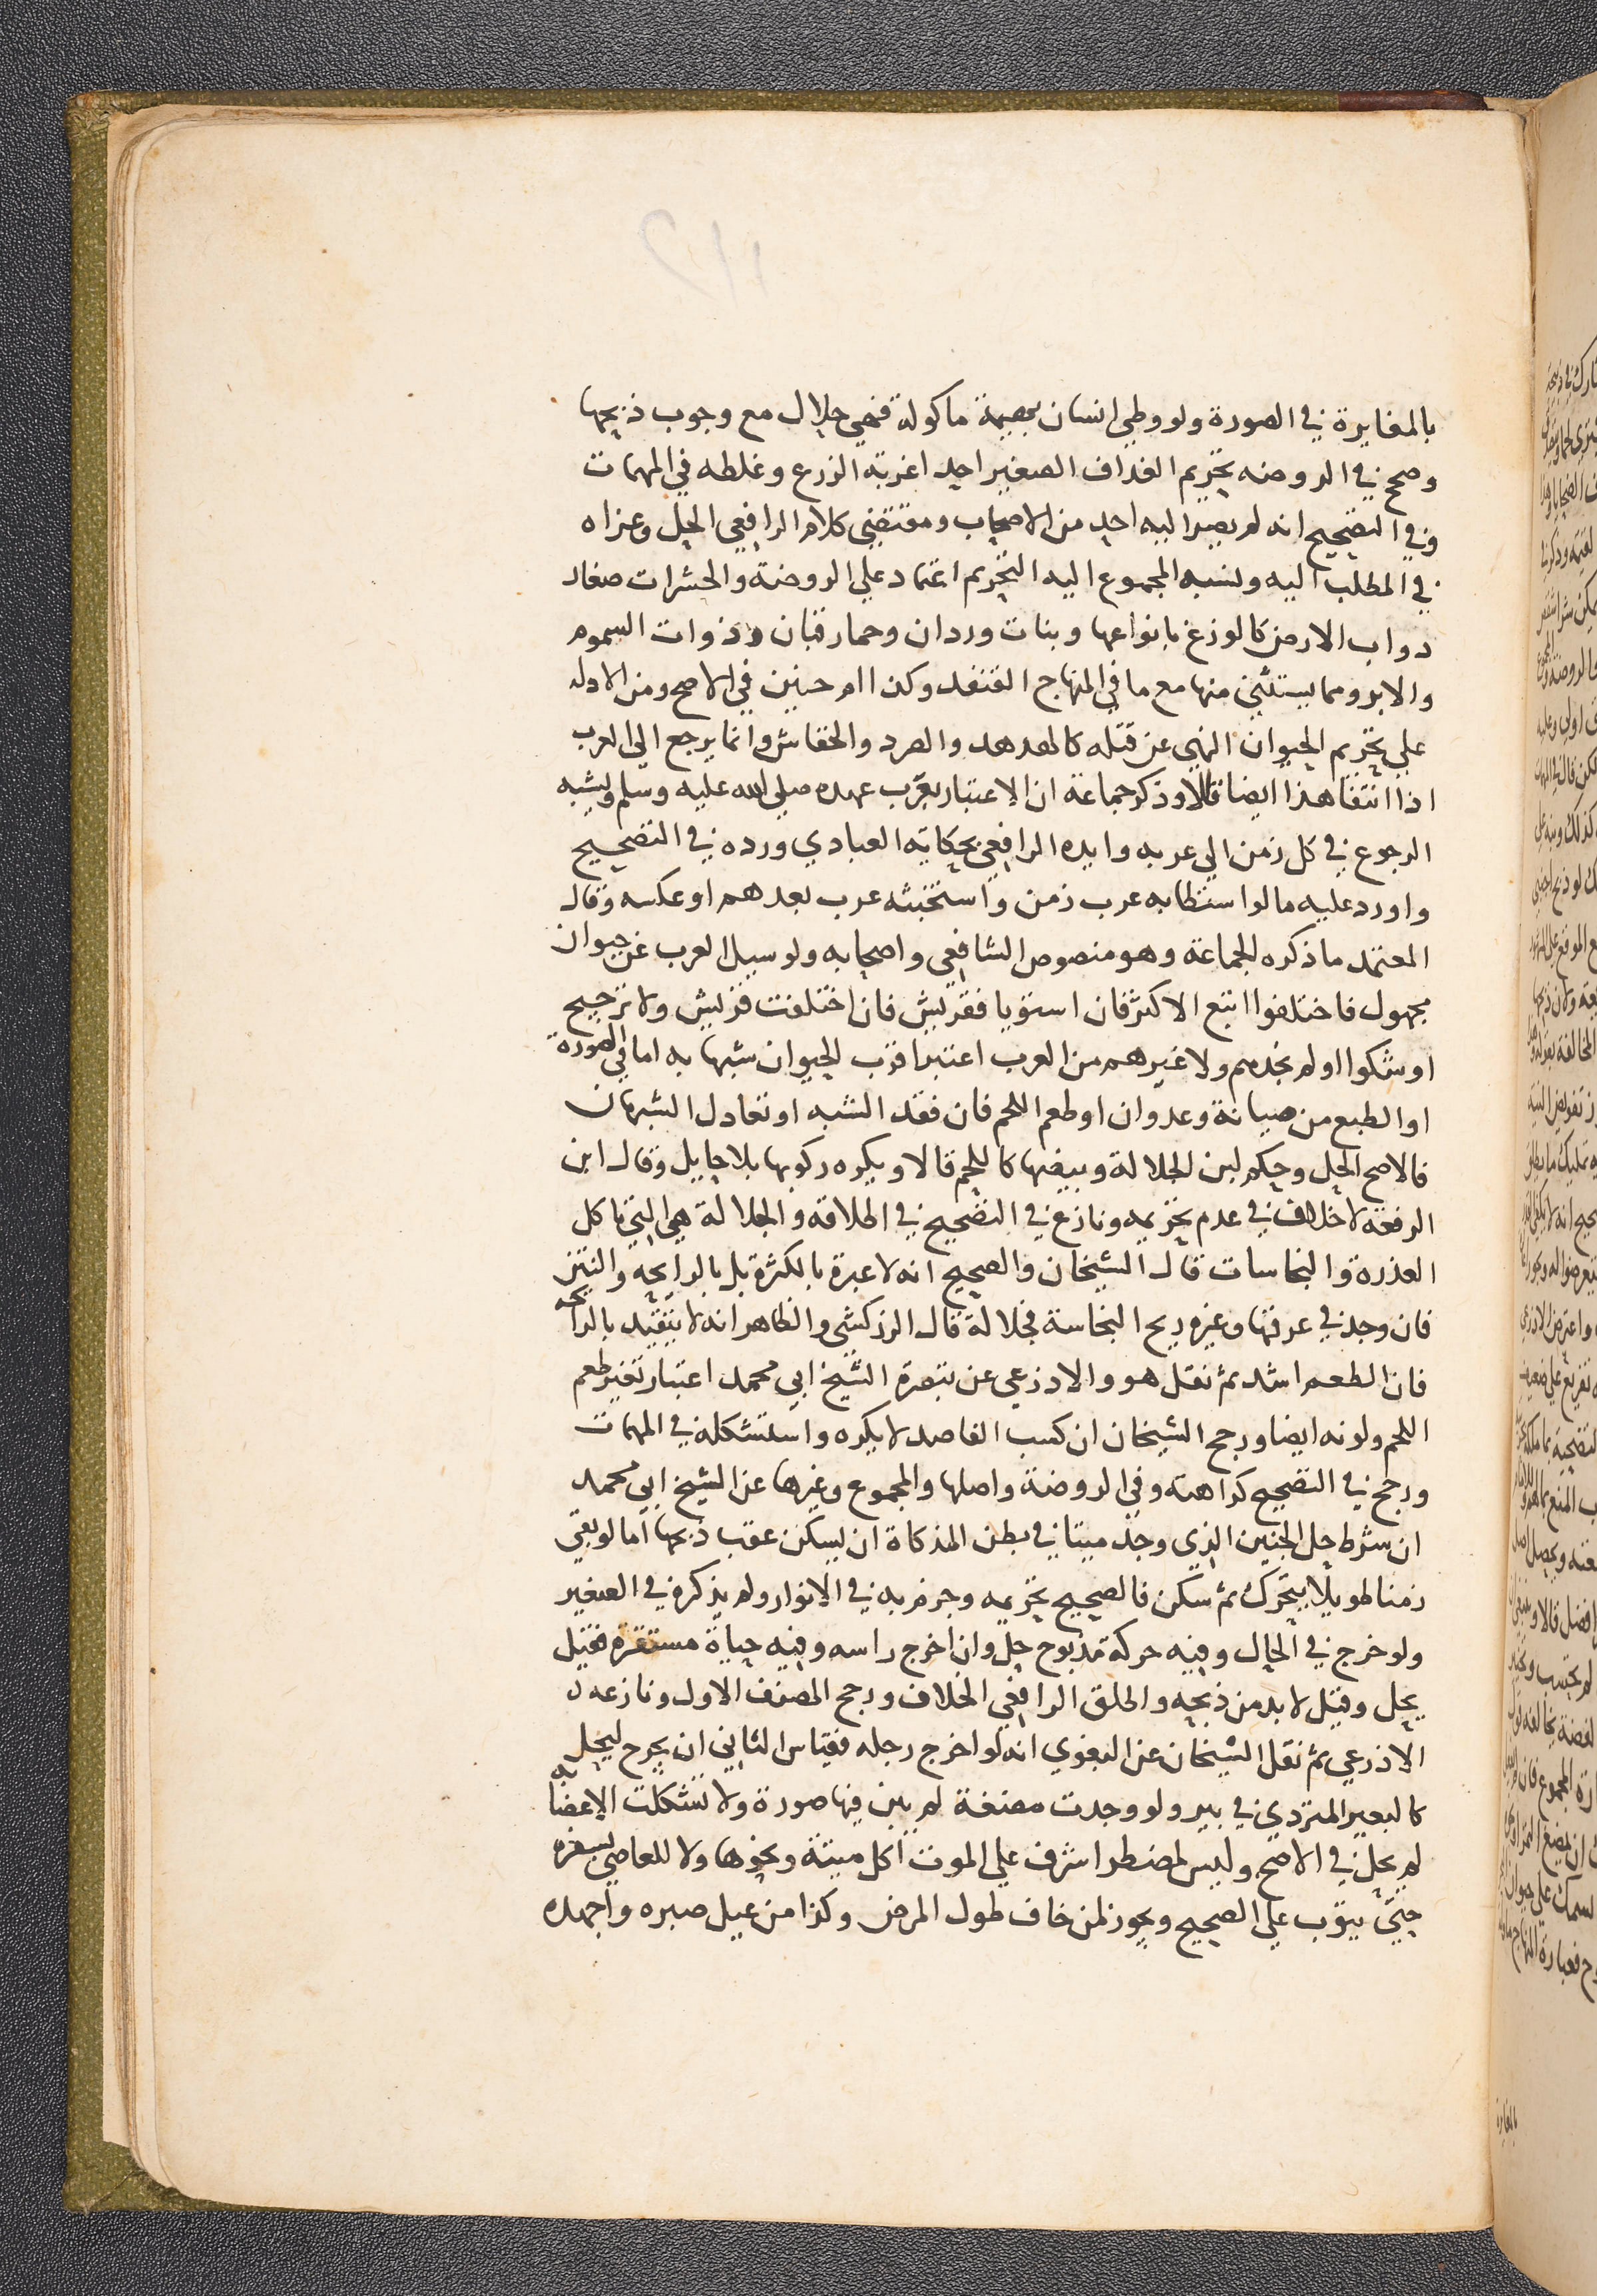 بالمغايرة في الصورة ولو وطي انسان بهيمة ماكولة فهي حلال مع وجوب ذبحها
وصحح في الروضه تحريم الغداف الصغير احد اغربة الزرع وغلطه في المهمات
وفي التصحيح انه لم يصر اليه احد من الاصحاب ومقتضي كلام الرافعي الحل وعزاه
في المطلب اليه ونسبه المجموع اليه التحريم اعتماد علي الروضة والحشرات صغار
دواب الارض كالوزغ بانواعها وبنات وردان وحمار قبان وذوات السموم
والابر ومما يستثني منها مع ما في المنهاج القنفد وكذا ام حبين في الاصح ومن الادله
علي تحريم الحيوان النهي عن قتله كالهدهد والصرد والخفاش وانما يرجع الي العرب
اذا انتفا هذا ايضا قالا وذكر جماعة ان الاعتبار بعرب عهده صلي الله عليه وسلم ويشبه
الرجوع في كل زمن الي عربه وايده الرافعي بحكاية العبادي ورده في التصحيح
واورد عليه ما لو استطابه عرب زمن واستخبثه عرب بعدهم او عكسه وقال
المعتمد ما ذكره الجماعة وهو منصوص الشافعي واصحابه ولو سيل العرب عن حيوان
مجهول فاختلفوا اتبع الاكثر فان استويا فقريش فان اختلفت قريش ولا ترجيح
او شكوا او لم نجدهم ولا غيرهم من العرب اعتبر اقرب الحيوان شبها به اما في الصورة
او الطبع من صيانة وعدوان او طعم اللحم فان فقد الشبه او تعادل الشبهان
فالاصح الحل وحكم لبن الجلالة وبيضها كاللحم قالا ويكره ركوبها بلا حايل وقال ابن
الرفعة لا خلاف في عدم تحريمه ونازع في التصحيح في اطلاقه والجلالة هي التي تاكل
العذرة والنجاسات قال الشيخان والصحيح انه لا عبرة بالكثرة بل بالرايحة والنتن
فان وجد في عرقها وغيره ريح النجاسة فجلالة قال الزركشي والظاهر انه لا يتقيد بالرايحه
فان الطعم اشد ثم نقل هو والاذرعي عن تبصرة الشيخ ابي محمد اعتبار تغير طعم
اللحم ولونه ايضا ورجح الشيخان ان كسب الفاصد لا يكره واستشكله في المهمات
ورجح في التصحيح كراهته وفي الروضة واصلها والمجموع وغيرها عن الشيخ ابي محمد
ان شرط حل الجنين الذي وجد ميتا في بطن المذكاة ان يسكن عقب ذبحها اما لو بقي
زمنا طويلا يتحرك ثم سكن فالصحيح تحريمه وجزم به في الانوار ولم يذكره في الصغير
ولو خرج في الحال وفيه حركة مذبوح حل وان اخرج راسه وفيه حياة مستقرة فقيل
يحل وقيل لا بد من ذبحه واطلق الرافعي الخلاف ورجح المصنف الاول ونازعه
الاذرعي ثم نقل الشيخان عن البغوي انه لو اخرج رجله فقياس الثاني ان يجرح ليحل به
كالبعير المتردي في بير ولو وجدت مضغة لم يبن فيها صورة ولا تشكلت الاعضا
لم يحل في الاصح وليس لمضطر اشرف علي الموت اكل ميتة ونحوها ولا للعاصي بسفره
حتي يتوب علي الصحيح ويجوز لمن خاف طول المرض وكذا من عيل صبره واجهده